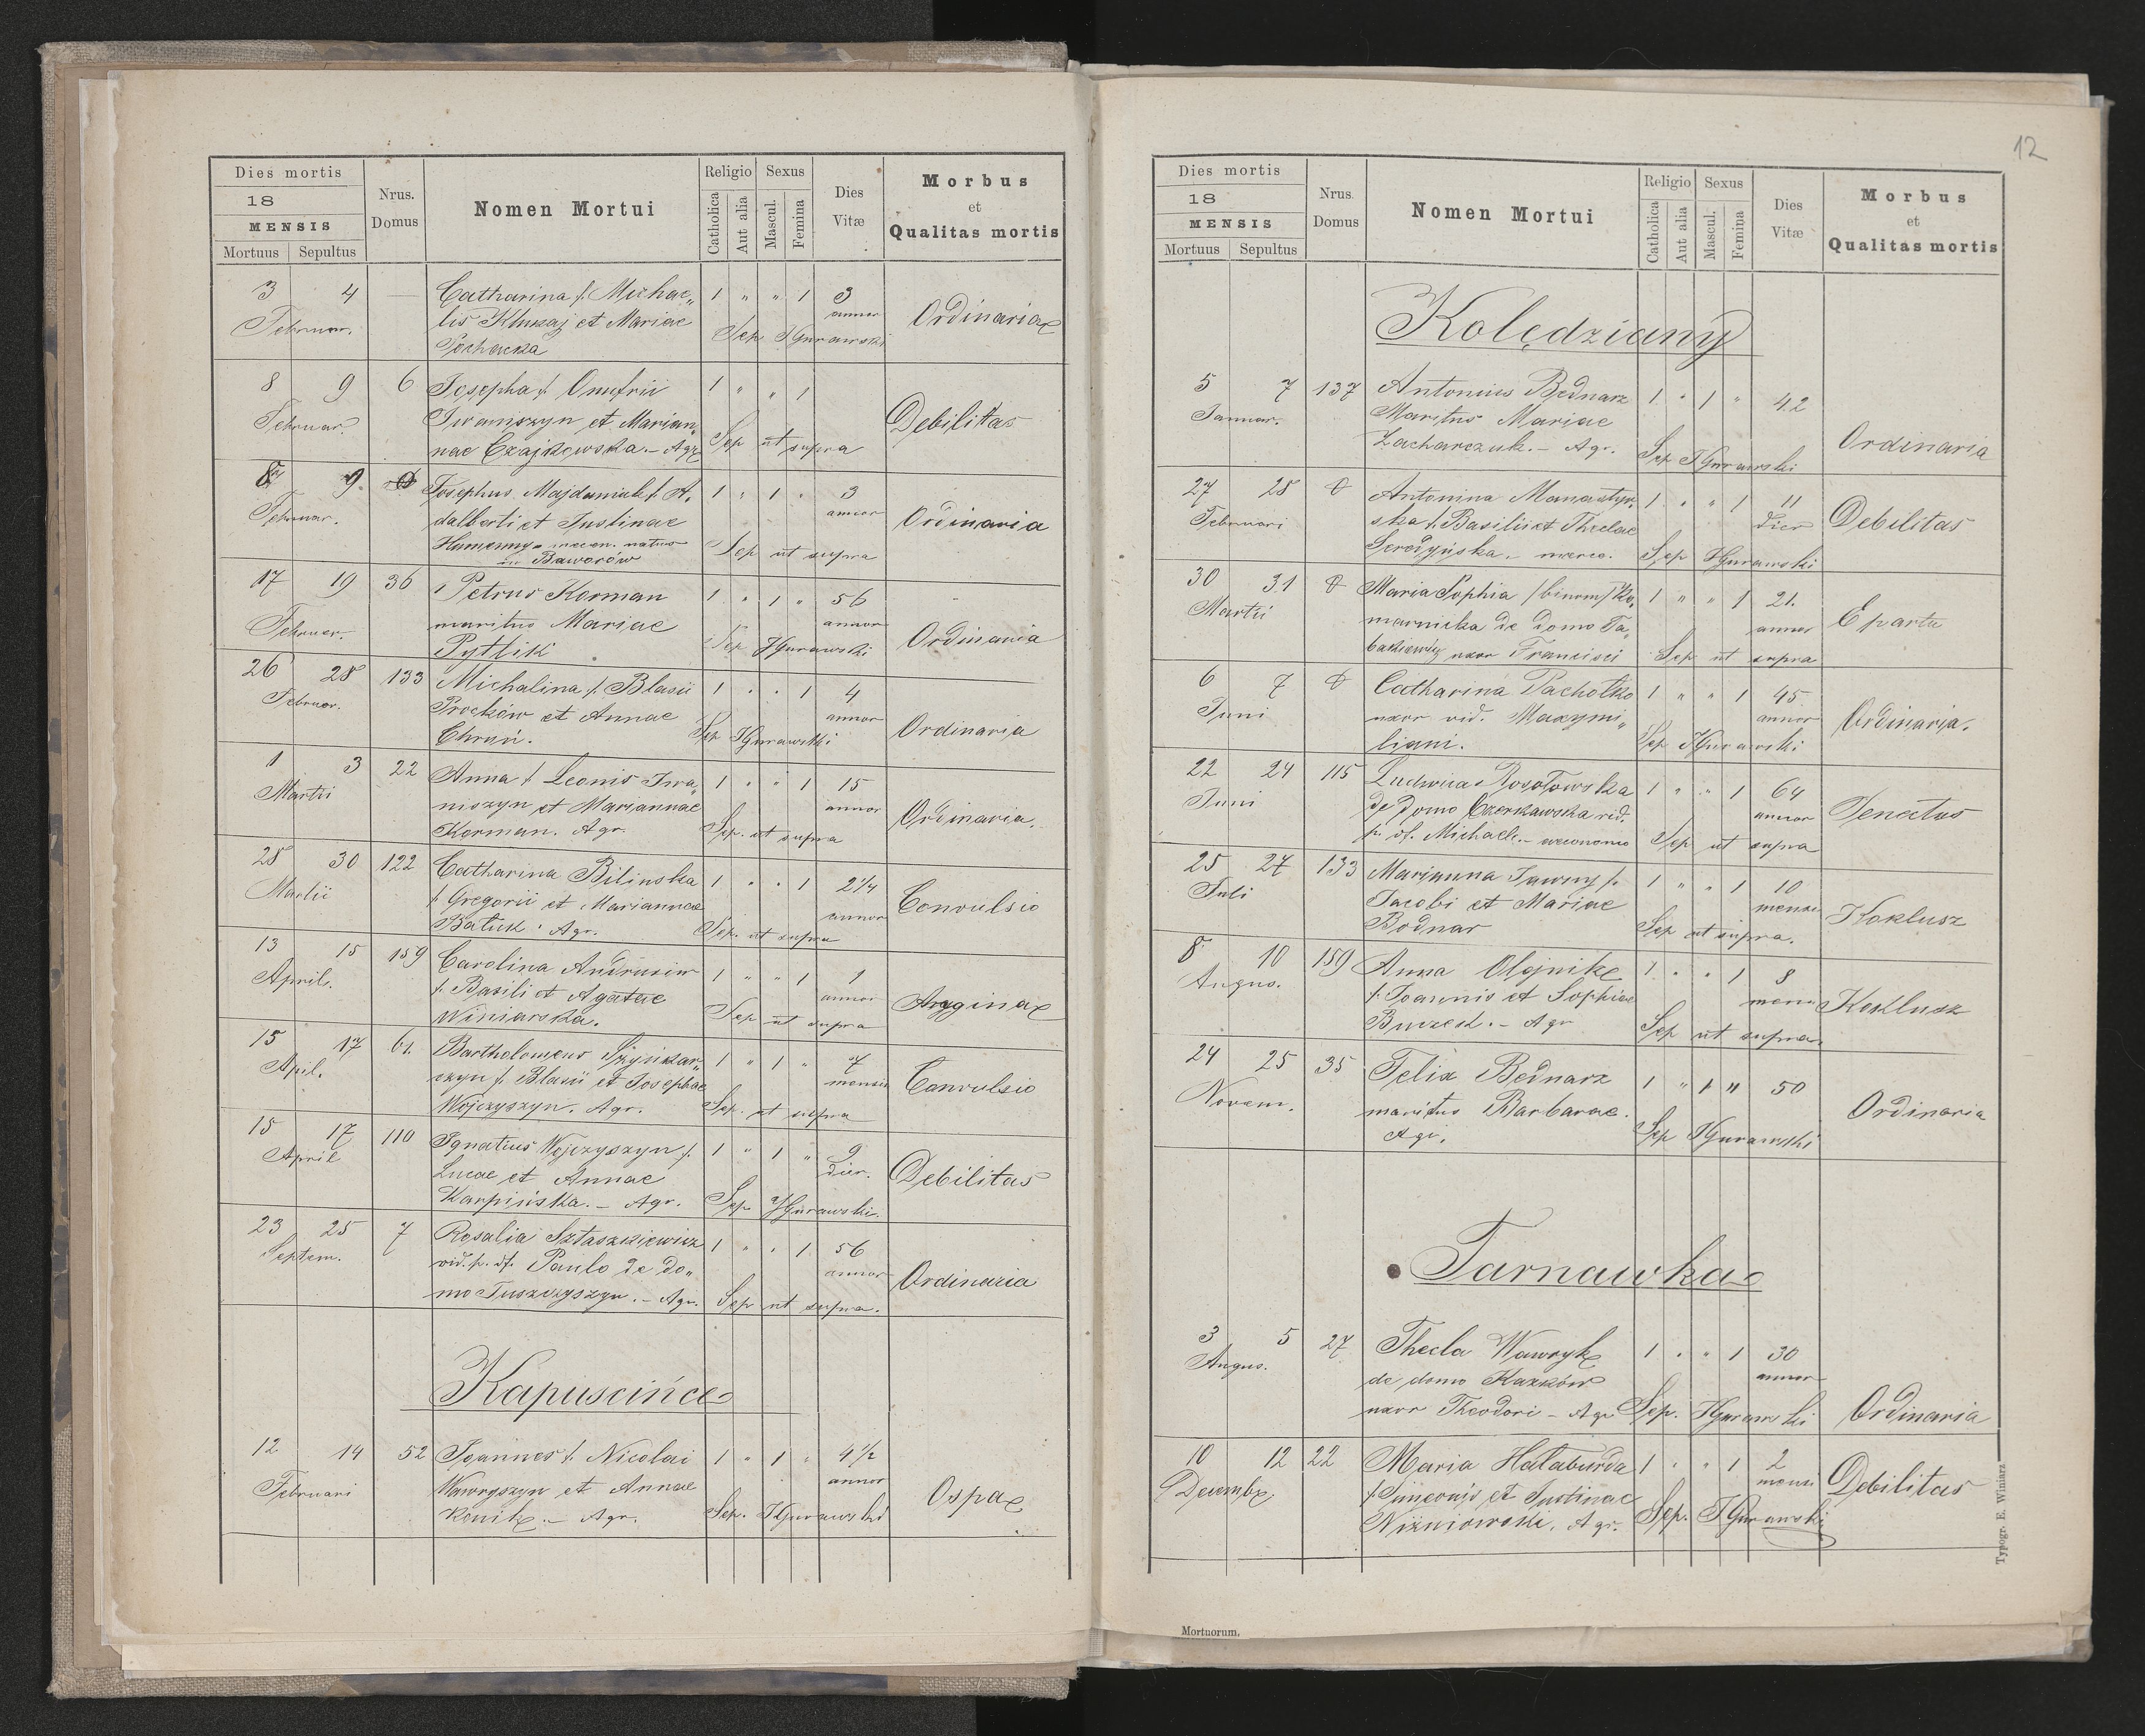 Dies mortis
18
MENSIS
Mortuus Sepultus
Nrus.
Domus
Nomen Mortui
Religio
Catholica
Aut alia
Sexus
Mascul.
Femina
Dies
Vitæ
Morbus
et
Qualitas mortis
3 4 — Catharina f. Michae„ 1 „ „ 1 3
Februar. lis et Mariae annor Ordinaria
Sep JGurawski
8 9 6 Josepha f. Onufrii 1 „ „ 1
Februar. Iwanszyn et Marian„ Debilitas
nae Czajkowska. - Agr. Sep ut supra
8 9. Josephus Majdaniuk f. A. 1 „ 1 „ 3
Februar. dalberti et Justinae annor Ordinaria
Humenny - natus Sep ut supra
in Baworów
17 19 36 Petrus Korman 1 „ 1 „ 56
Februar. maritus Mariae annor Ordinaria
Pytlik Sep JGurawski
26 28 133 Michalina f. Blasii 1 „ „ 1 4
Februar. Proćków et Annae annor Ordinaria
Chruń. Sep JGurawski
1 3 22 Anna f. Leonis Iwa„ 1 „ „ 1 15
Martii niszyn et Mariannae annor Ordinaria.
Korman. Agr. Sep. ut supra
28 30 122 Catharina Bilinska 1 „ „ 1 2¼
Martii f. Gregorii et Mariannae annor Convulsio
Batiuk. Agr. Sep. ut supra
13 15 159 Carolina Andrusiw 1 „ „ 1 1
April. f. Basili et Agatae annor Anginae
Winiarska. Sep ut supra
15 17 61. Bartholomeus 1 „ 1 „ 7
April. czyn f. Blasii et Josephae mensis Convulsio
Wojczyszyn. Agr. Sep. ut supra
15 17 110 Ignatius Wojczyszyn f. 1 „ 1 „ 9
April Lucae et Annae dier. Debilitas
Karpińska. - Agr. Sep JGurawski.
23 25 7 Rosalia Sztaszkiewicz 1 „ „ 1 56
Septem. vid. p. df. Paulo de do„ annor Ordinaria
mo Tuszczyszyn. - Agr. Sep ut supra.
Kapuscińce
12 14 52 Joannes f. Nicolai 1 „ 1 „ 4½
Februari Wawryszyn et Annae annor Ospae
Konik. - Agr. Sep. JGurawski
12
Dies mortis
18
MENSIS
Mortuus Sepultus
Nrus.
Domus
Nomen Mortui
Religio
Catholica
Aut alia
Sexus
Mascul.
Femina
Dies
Vitæ
Morbus
et
Qualitas mortis
Kolędziany
5 7 137 Antonius Bednarz 1 „ 1 „ 42
Januar. Maritus Mariae Ordinaria
Zacharczuk. - Agr. Sep JGurawski
27 28 Antonina Manastyr„ 1 „ „ 1 11
Februari ska f. Basilii et Theclae dier Debilitas
Seredyńska. - Sep JGurawski
30 31 Maria Sophia /binom/ Ko„ 1 „ „ 1 21.
Martii marnicka de domo Ta„ annor E partu
baczkiewicz uxor Francisci Sep ut supra
6 7 Catharina Pachołko 1 „ „ 1 45
Juni uxor vid. Maxymi„ annor Ordinaria.
liani. Sep JGurawski
22 24 115 Ludwica Rosołowska 1 „ „ 1 64
Juni de domo Czerkawska vid. annor Senectus
p. df. Michaele. - Sep ut supra
25 27 133 Marianna Jawny f. 1 „ „ 1 10
Juli Jacobi et Mariae mensi Koklusz
Bodnar Sep ut supra.
8 10 159 Anna Olejnik 1 „ „ 1 8
Augus. f. Joannis et Sophiae mensi Koklusz
Burzed. - Agr Sep ut supra
24 25 35 Felix Bednarz 1 „ 1 „ 50
Novem. maritus Barbarae. Ordinaria
Agr. Sep JGurawski
Tarnawka
3 5 27 Thecla Wawryk 1 „ „ 1 30
Augus. de domo Kazków annor
uxor Theodori - Agr Sep. JGurawski Ordinaria
10 12 22 Maria Hałaburda 1 „ „ 1 2
Decembr. f. Simeonis et Justinae mensi Debilitas
Niżniowski. Agr. Sep. JGurawski
Typogr. E. Winiarz
Mortuorum.